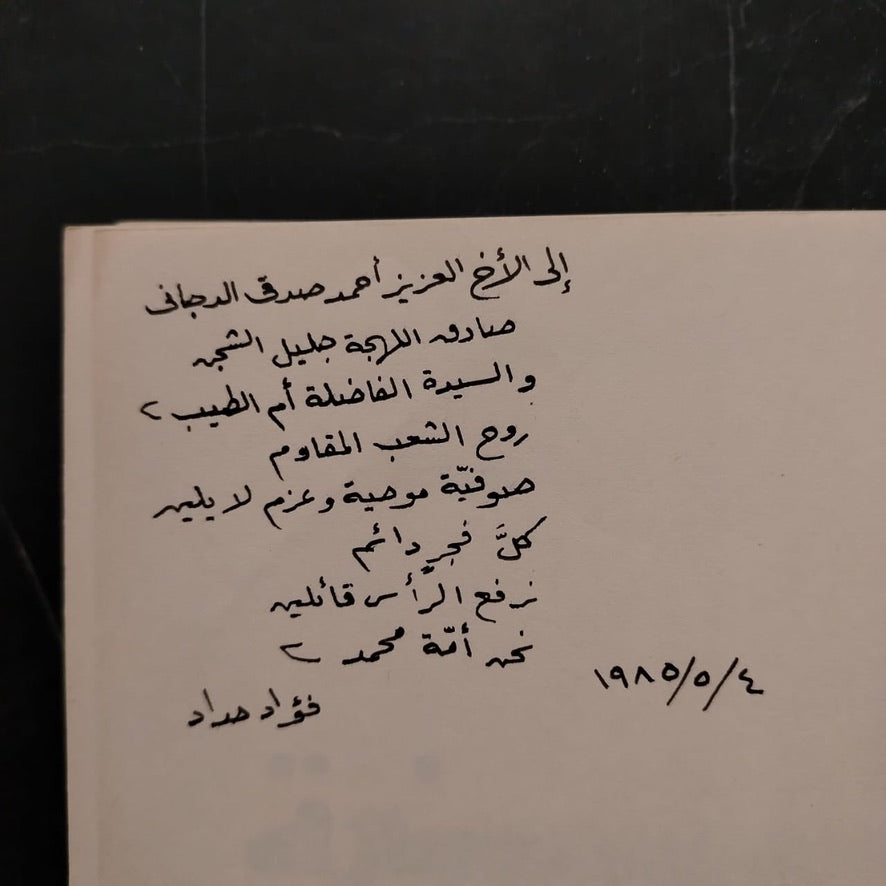 إلى الأخ العزيز أحمد صدقى الدجانى
صادق اللهجة جليل الشجن
والسيدة الفاضلة أم الطيب
روح الشعب المقاوم
صوفيّة موحية وعزم لا يلين
كلَّ فجرٍ دائم
نرفع الرّأس قائلين
نحن أمّة محمد
١٩٨٥/٥/٤
فؤاد حداد